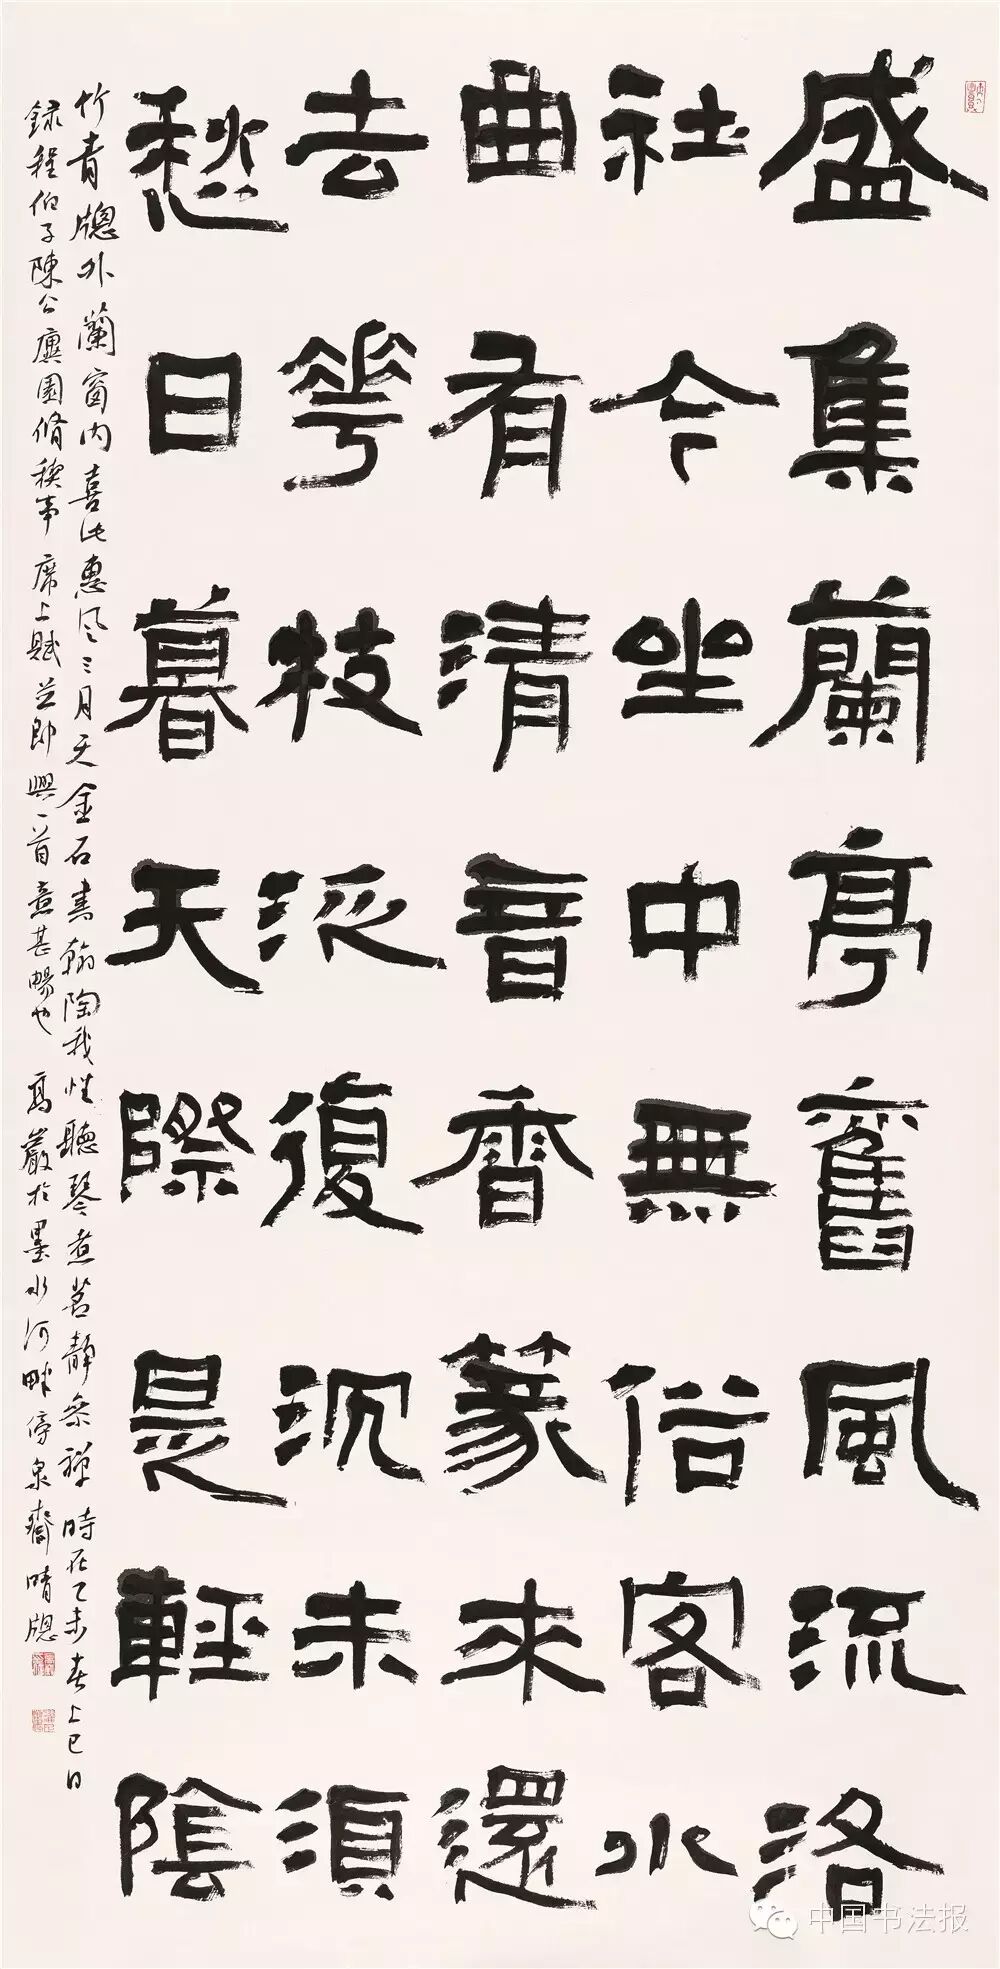 盛集蘭亭舊風流洛
社今坐中無俗客水
曲有清音香篆來還
去花枝泛復沉未須
愁日暮天際是輕陰
竹青牕外蘭窗內喜此惠風三月天金石書翰陶我性聽琴煮茗靜參禪時在乙未春上巳日
録程伯子陳公廙園脩稧事席上賦並即興一首意甚暢也高巖於墨水河畔泉齋晴牕
中国书法报